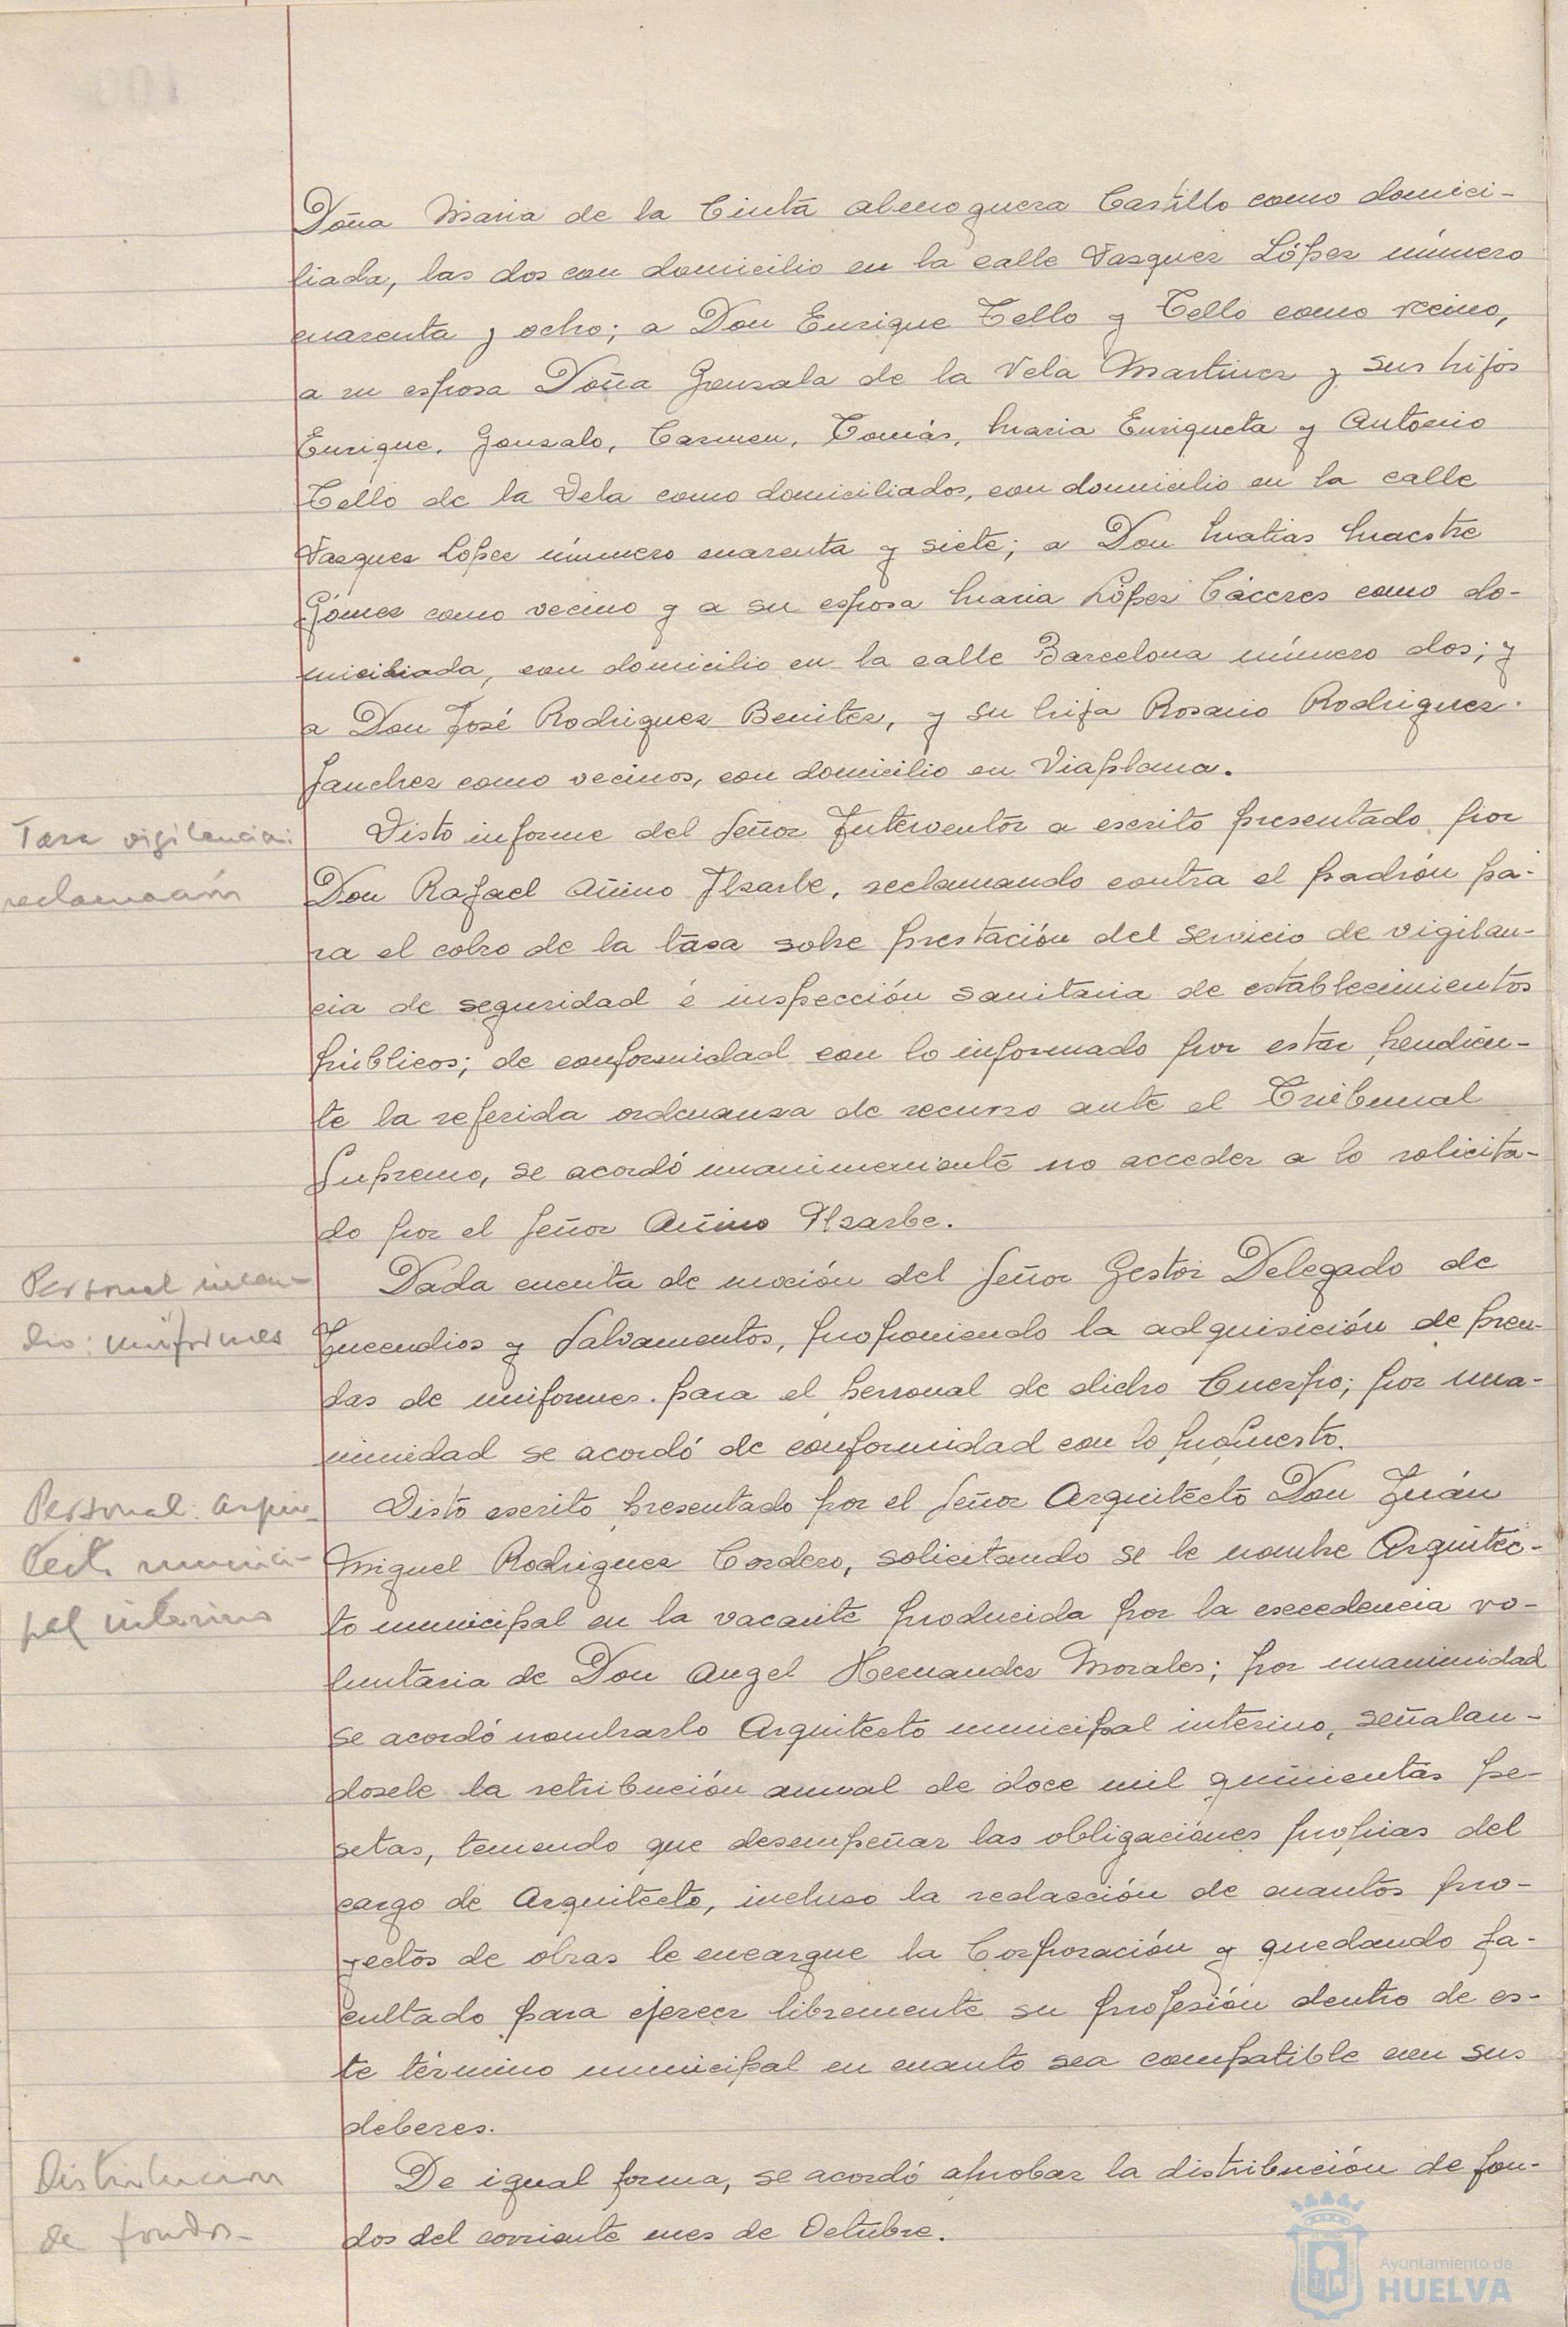 Doña Maria de la Cinta Almoguera Castillo como domici-
liada, las dos con domicilio en la calle Vazquez López número
cuarenta y ocho; a Don Enrique Tello y Tello como vecino,
a su esposa Doña Gonzala de la Vela Martinez y sus hijos
Enrique, Gonzalo, Carmen, Tomás, Maria Enriqueta y Antonio
Tello de la Vela como domiciliados, con domicilio en la calle
Vazquez López número cuarenta y siete; a Don Matias Maestre
Gómez como vecino y a su esposa Maria López Cáceres como do-
miciliada, con domicilio en la calle Barcelona número dos; y
a Don José Rodriguez Benitez, y su hija Rosario Rodriguez
Sanchez como vecinos, con domicilio en Viaplana.
Tasa vigilancia:
reclamación
Visto informe del Señor Interventor a escrito presentado por
Don Rafael Añino Ilzarbe, reclamando contra el padrón pa-
ra el cobro de la tasa sobre prestación del servicio de vigilan-
cia de seguridad é inspección sanitaria de establecimientos
públicos; de conformidad con lo informado por estar pendien-
te la referida ordenanza de recurso ante el Tribunal
Supremo, se acordó unanimemente no acceder a lo solicita-
do por el Señor Añino Ilzarbe.
Personal incen-
dio: uniformes
Dada cuenta de moción del Señor Gestor Delegado de
Incendios y Salvamentos, proponiendo la adquisición de pren-
das de uniformes para el personal de dicho Cuerpo; por una-
nimidad se acordó de conformidad con lo propuesto.
Personal: Arqui-
tecto munici-
pal interino
Visto escrito presentado por el Señor Arquitecto Don Juán
Miguel Rodriguez Cordero, solicitando se le nombre Arquitec-
to municipal en la vacante producida por la excedencia vo-
luntaria de Don Angel Hernandez Morales; por unanimidad
se acordó nombrarlo Arquitecto municipal interino, señalan-
dosele la retribución anual de doce mil quinientas pe-
setas, teniendo que desempeñar las obligaciones propias del
cargo de Arquitecto, incluso la redacción de cuantos pro-
yectos de obras le encargue la Corporación y quedando fa-
cultado para ejercer libremente su profesión dentro de es-
te término municipal en cuanto sea compatible con sus
deberes.
Distribucion
de fondos-
De igual forma, se acordó aprobar la distribución de fon-
dos del corriente mes de Octubre.
Ayuntamiento de
HUELVA